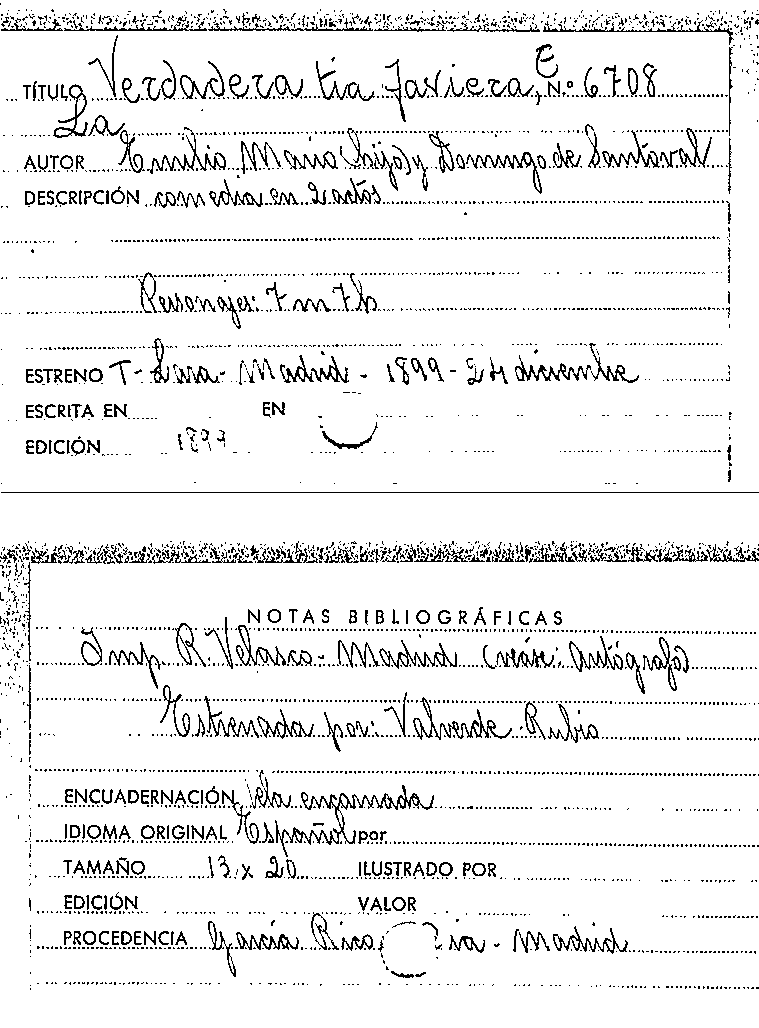 E
TÍTULO Verdadera tia Javiera, N.º 6708
La
AUTOR Emilio Mario (hijo) y Domingo de Santoval
DESCRIPCIÓN comedia en 2 actos
Personajes: 7 m 7 h
ESTRENO T- Lara - Madrid - 1899 - 24 diciembre
ESCRITA EN EN
EDICIÓN 1899
NOTAS BIBLIOGRÁFICAS
Imp. R. Velasco - Madrid (véase: Autógrafos)
Estrenada por: Valverde - Rubio
ENCUADERNACIÓN tela engamada
IDIOMA ORIGINAL Español por
TAMAÑO 13 x 20 ILUSTRADO POR
EDICIÓN VALOR
PROCEDENCIA García Rico - Madrid